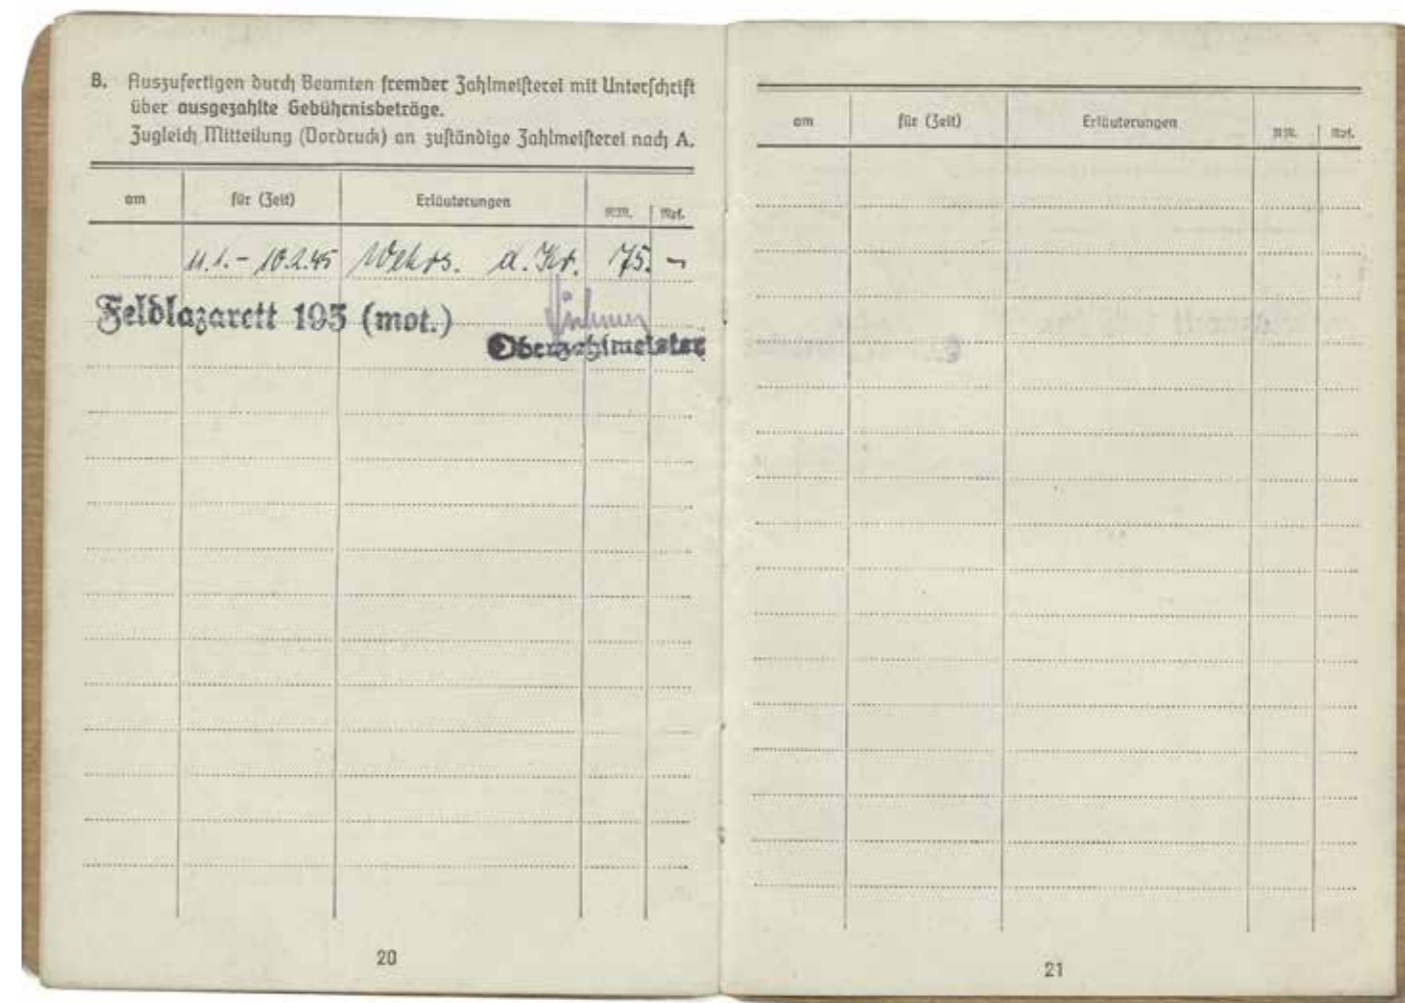 B. Auszufertigen durch Beamten fremder Zahlmeisterei mit Unterschrift
über ausgezahlte Gebührnisbeträge.
Zugleich Mitteilung (Vordruck) an zuständige Zahlmeisterei nach A.
am für (Zeit) Erläuterungen RM. Rpf.
11.1. - 10.2.45 Wehrs. d. Kr. 75. -
Feldlazarett 193 (mot.)
Oberzahlmeister
20
am für (Zeit) Erläuterungen RM. Rpf.
21